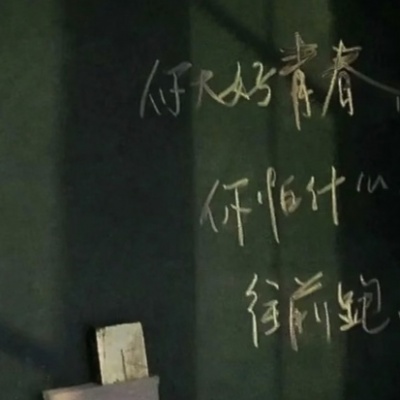 你大好青春,
你怕什么
往前跑.